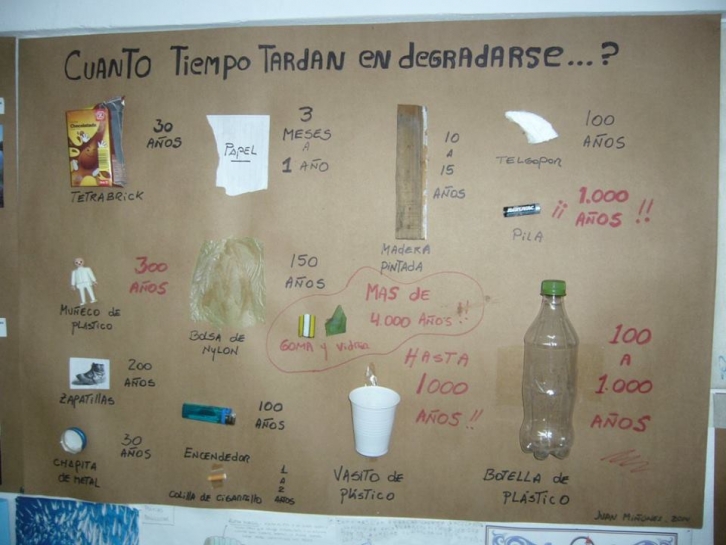 CUANTO TIEMPO TARDAN EN DEGRADARSE...?
TETRABRICK
30
AÑOS
PAPEL
3
MESES
A
1 AÑO
MADERA
PINTADA
10
A
15
AÑOS
TELGOPOR
100
AÑOS
PILA
¡¡ 1.000
AÑOS !!
MUÑECO DE
PLASTICO
300
AÑOS
BOLSA DE
NYLON
150
AÑOS
GOMA Y VIDRIO
MAS DE
4.000 AÑOS !!
ZAPATILLAS
200
AÑOS
CHAPITA
DE METAL
30
AÑOS
ENCENDEDOR
100
AÑOS
COLILLA DE CIGARRILLO
1
A
2
AÑOS
VASITO DE
PLÁSTICO
HASTA
1000
AÑOS !!
BOTELLA DE
PLÁSTICO
100
A
1.000
AÑOS
JUAN